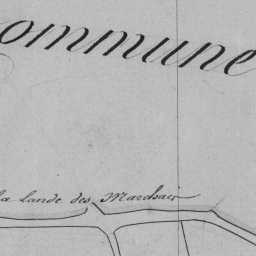 ommune
la Lande des